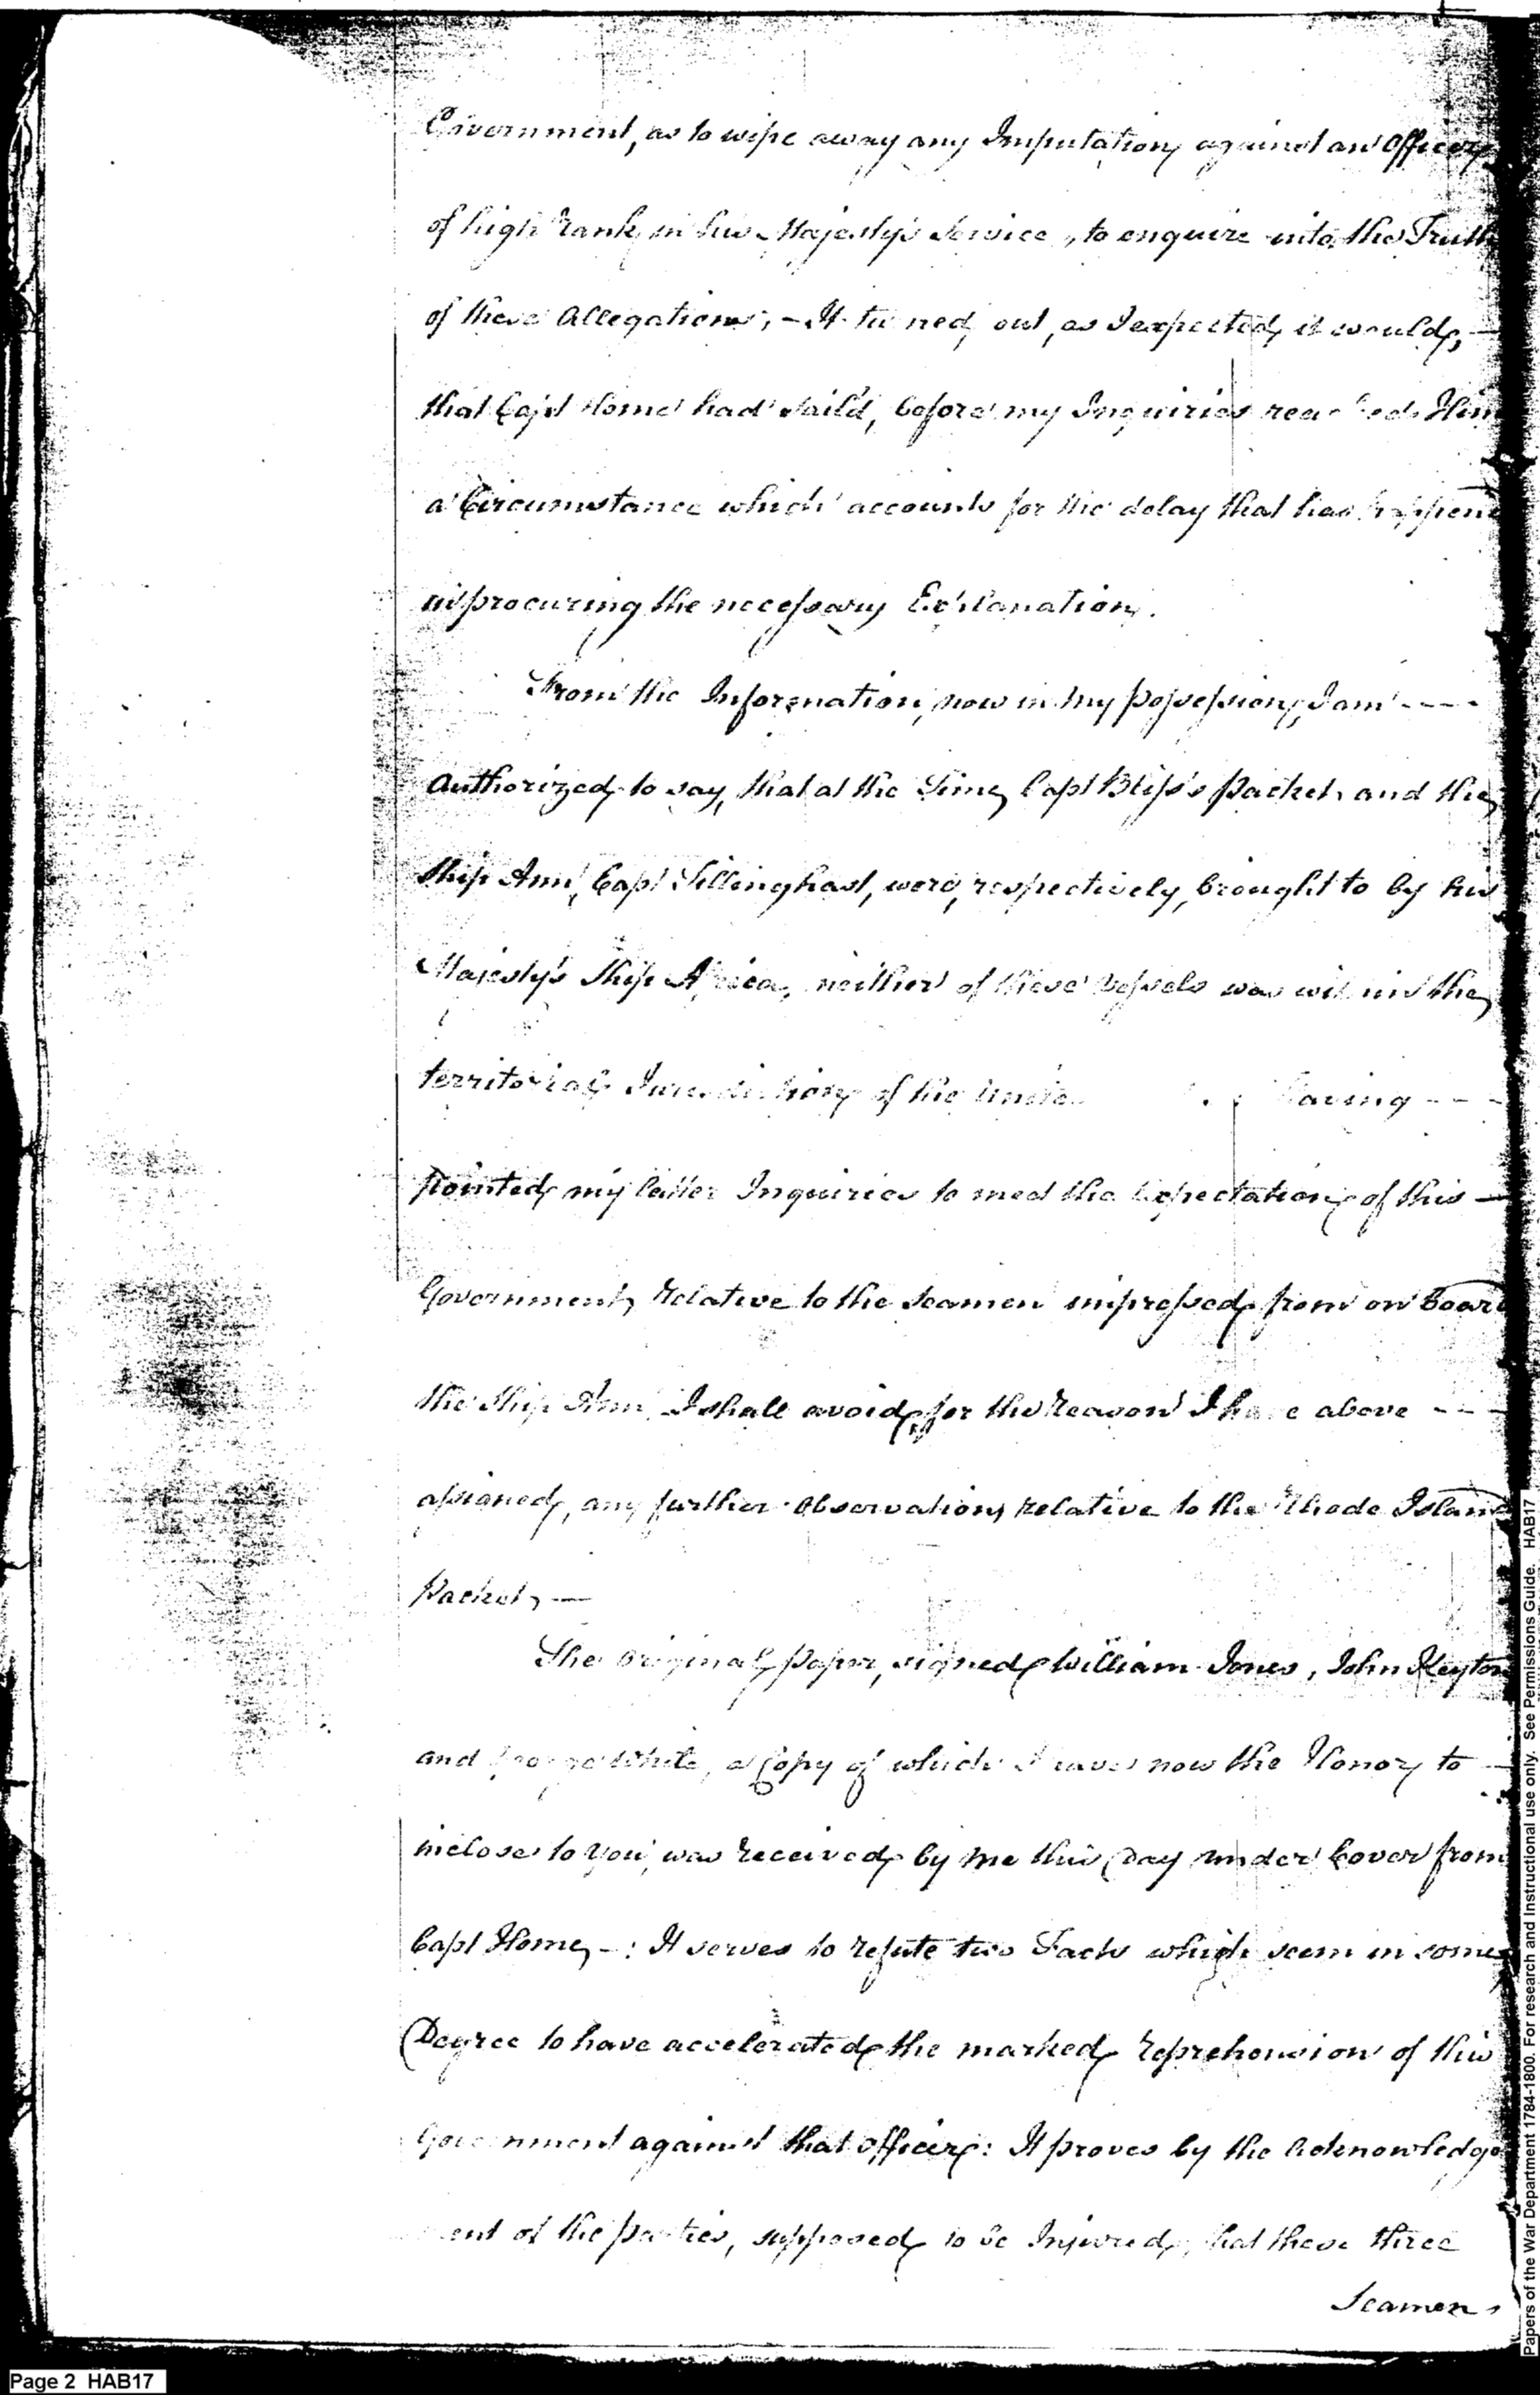 Government, as to wipe away any Imputation against an Officer
of high Rank in his Majesty's Service, to enquire into the Truth
of these Allegations; – It turned out, as I expected it would, –
that Capt Home had sail'd, before my Inquiries reached Him
a Circumstance which accounts for the delay that has happend
in procuring the necessary Explanation.
From the Information, now in my possession, I am - - - -
Authorized to say, that at the Time Capt Bliss's packet, and the
Ship Ann, Capt Tillinghast, were, respectively, brought to by his
Majesty's Ship Africa, neither of these Vessels was within the
territorial Jurisdiction of the United having - - -
pointed my latter Inquiries to meet the Expectation of this –
Government, Relative to the Seamen impressed from on board
the Ship Ann, I shall avoid, for the Reason I have above - - -
assigned, any further Observation, Relative to the Rhode Island
Packet, –
The Original paper, signed William Jones, John Keyton
and George White, a Copy of which I have now the Honor to –
inclose to you, was received by me this Day under Cover from
Capt Home, – : It serves to refute two Facts which seem in some
Degree to have accelerated the marked reprehension of this
Government against that officer: It proves by the Acknowledge
ment of the parties, supposed to be Injured, that these three
Seamen,
Papers of the War Department 1784-1800. For research and Instructional use only. See Permissions Guide. HAB17
Page 2 HAB17